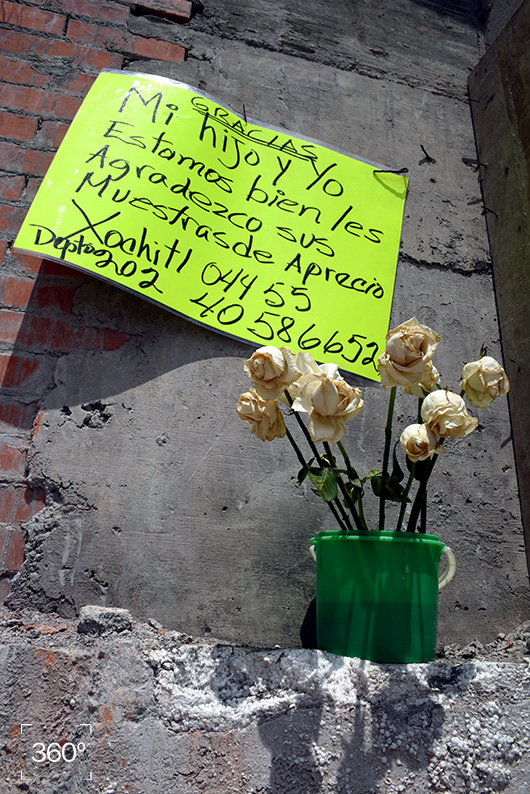 GRACIAS
Mi hijo y Yo
Estamos bien les
Agradezco sus
Muestras de Aprecio
Xochitl 044 55
Depto 202 40 586652
360º